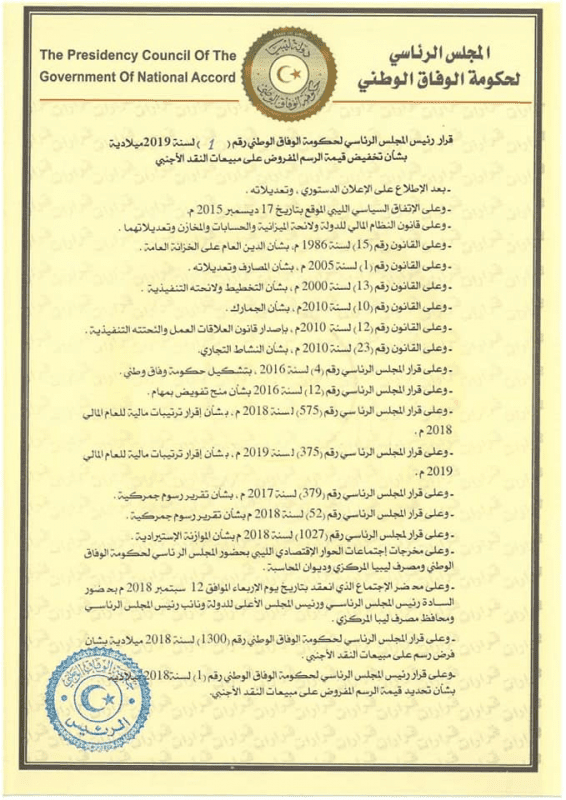 The Presidency Council Of The
Government Of National Accord
المجلس الرئاسي
لحكومة الوفاق الوطني
دولة ليبيا
حكومة الوفاق الوطني
قرار رئيس المجلس الرئاسي لحكومة الوفاق الوطني رقم ( 1 ) لسنة 2019 ميلادية
بشأن تخفيض قيمة الرسم المفروض على مبيعات النقد الأجنبي
ـ بعد الإطلاع على الإعلان الدستوري ، وتعديلاته .
ـ وعلى الإتفاق السياسي الليبي الموقع بتاريخ 17 ديسمبر 2015 م.
ـ وعلى قانون النظام المالي للدولة ولائحة الميزانية والحسابات والمخازن وتعديلاتهما .
ـ وعلى القانون رقم (15) لسنة 1986 م، بشأن الدين العام على الخزانة العامة .
ـ وعلى القانون رقم (1) لسنة 2005 م ، بشأن المصارف وتعديلاته .
ـ وعلى القانون رقم (13) لسنة 2000 م ، بشأن التخطيط ولائحته التنفيذية .
ـ وعلى القانون رقم (10) لسنة 2010م ، بشأن الجمارك .
ـ وعلى القانون رقم (12) لسنة 2010م ، بإصدار قانون العلاقات العمل والئحتته التنفيذية .
ـ وعلى القانون رقم (23) لسنة 2010 م ، بشأن النشاط التجاري.
ـ وعلى قرار المجلس الرئاسي رقم (4) لسنة 2016 ، بتشكيل حكومة وفاق وطني .
ـ وعلى قرار المجلس الرئاسي رقم (12) لسنة 2016 بشأن منح تفويض بمهام .
ـ وعلى قرار المجلس الرئاسي رقم (575) لسنة 2018 م ، بشأن إقرار ترتيبات مالية للعام المالي
2018 م .
ـ وعلى قرار المجلس الرئاسي رقم (375) لسنة 2019 م ، بشأن إقرار ترتيبات مالية للعام المالي
2019 م.
ـ وعلى قرار المجلس الرئاسي رقم (379) لسنة 2017 م ، بشأن تقرير رسوم جمركية .
ـ وعلى قرار المجلس الرئاسي رقم (52) لسنة 2018 م بشأن تقرير رسوم جمركية .
ـ وعلى قرار المجلس الرئاسي رقم (1027) لسنة 2018 م بشأن الموازنة الإستيرادية .
ـ وعلى مخرجات إجتماعات الحوار الإقتصادي الليبي بحضور المجلس الرئاسي لحكومة الوفاق
الوطني ومصرف ليبيا المركزي وديوان المحاسبة .
ـ وعلى محضر الإجتماع الذي انعقد بتاريخ يوم الإربعاء الموافق 12 سبتمبر 2018 م بحضور
السادة رئيس المجلس الرئاسي ورئيس المجلس الأعلى للدولة ونائب رئيس المجلس الرئاسي
ومحافظ مصرف ليبا المركزي .
ـ وعلى قرار المجلس الرئاسي لحكومة الوفاق الوطني رقم (1300) لسنة 2018 ميلادية بشأن
فرض رسم على مبيعات النقد الأجنبي .
ـ وعلى قرار رئيس المجلس الرئاسي لحكومة الوفاق الوطني رقم (1) لسنة 2018 ميلادية
بشأن تحديد قيمة الرسم المفروض على مبيعات النقد الأجنبي.
الرئيس